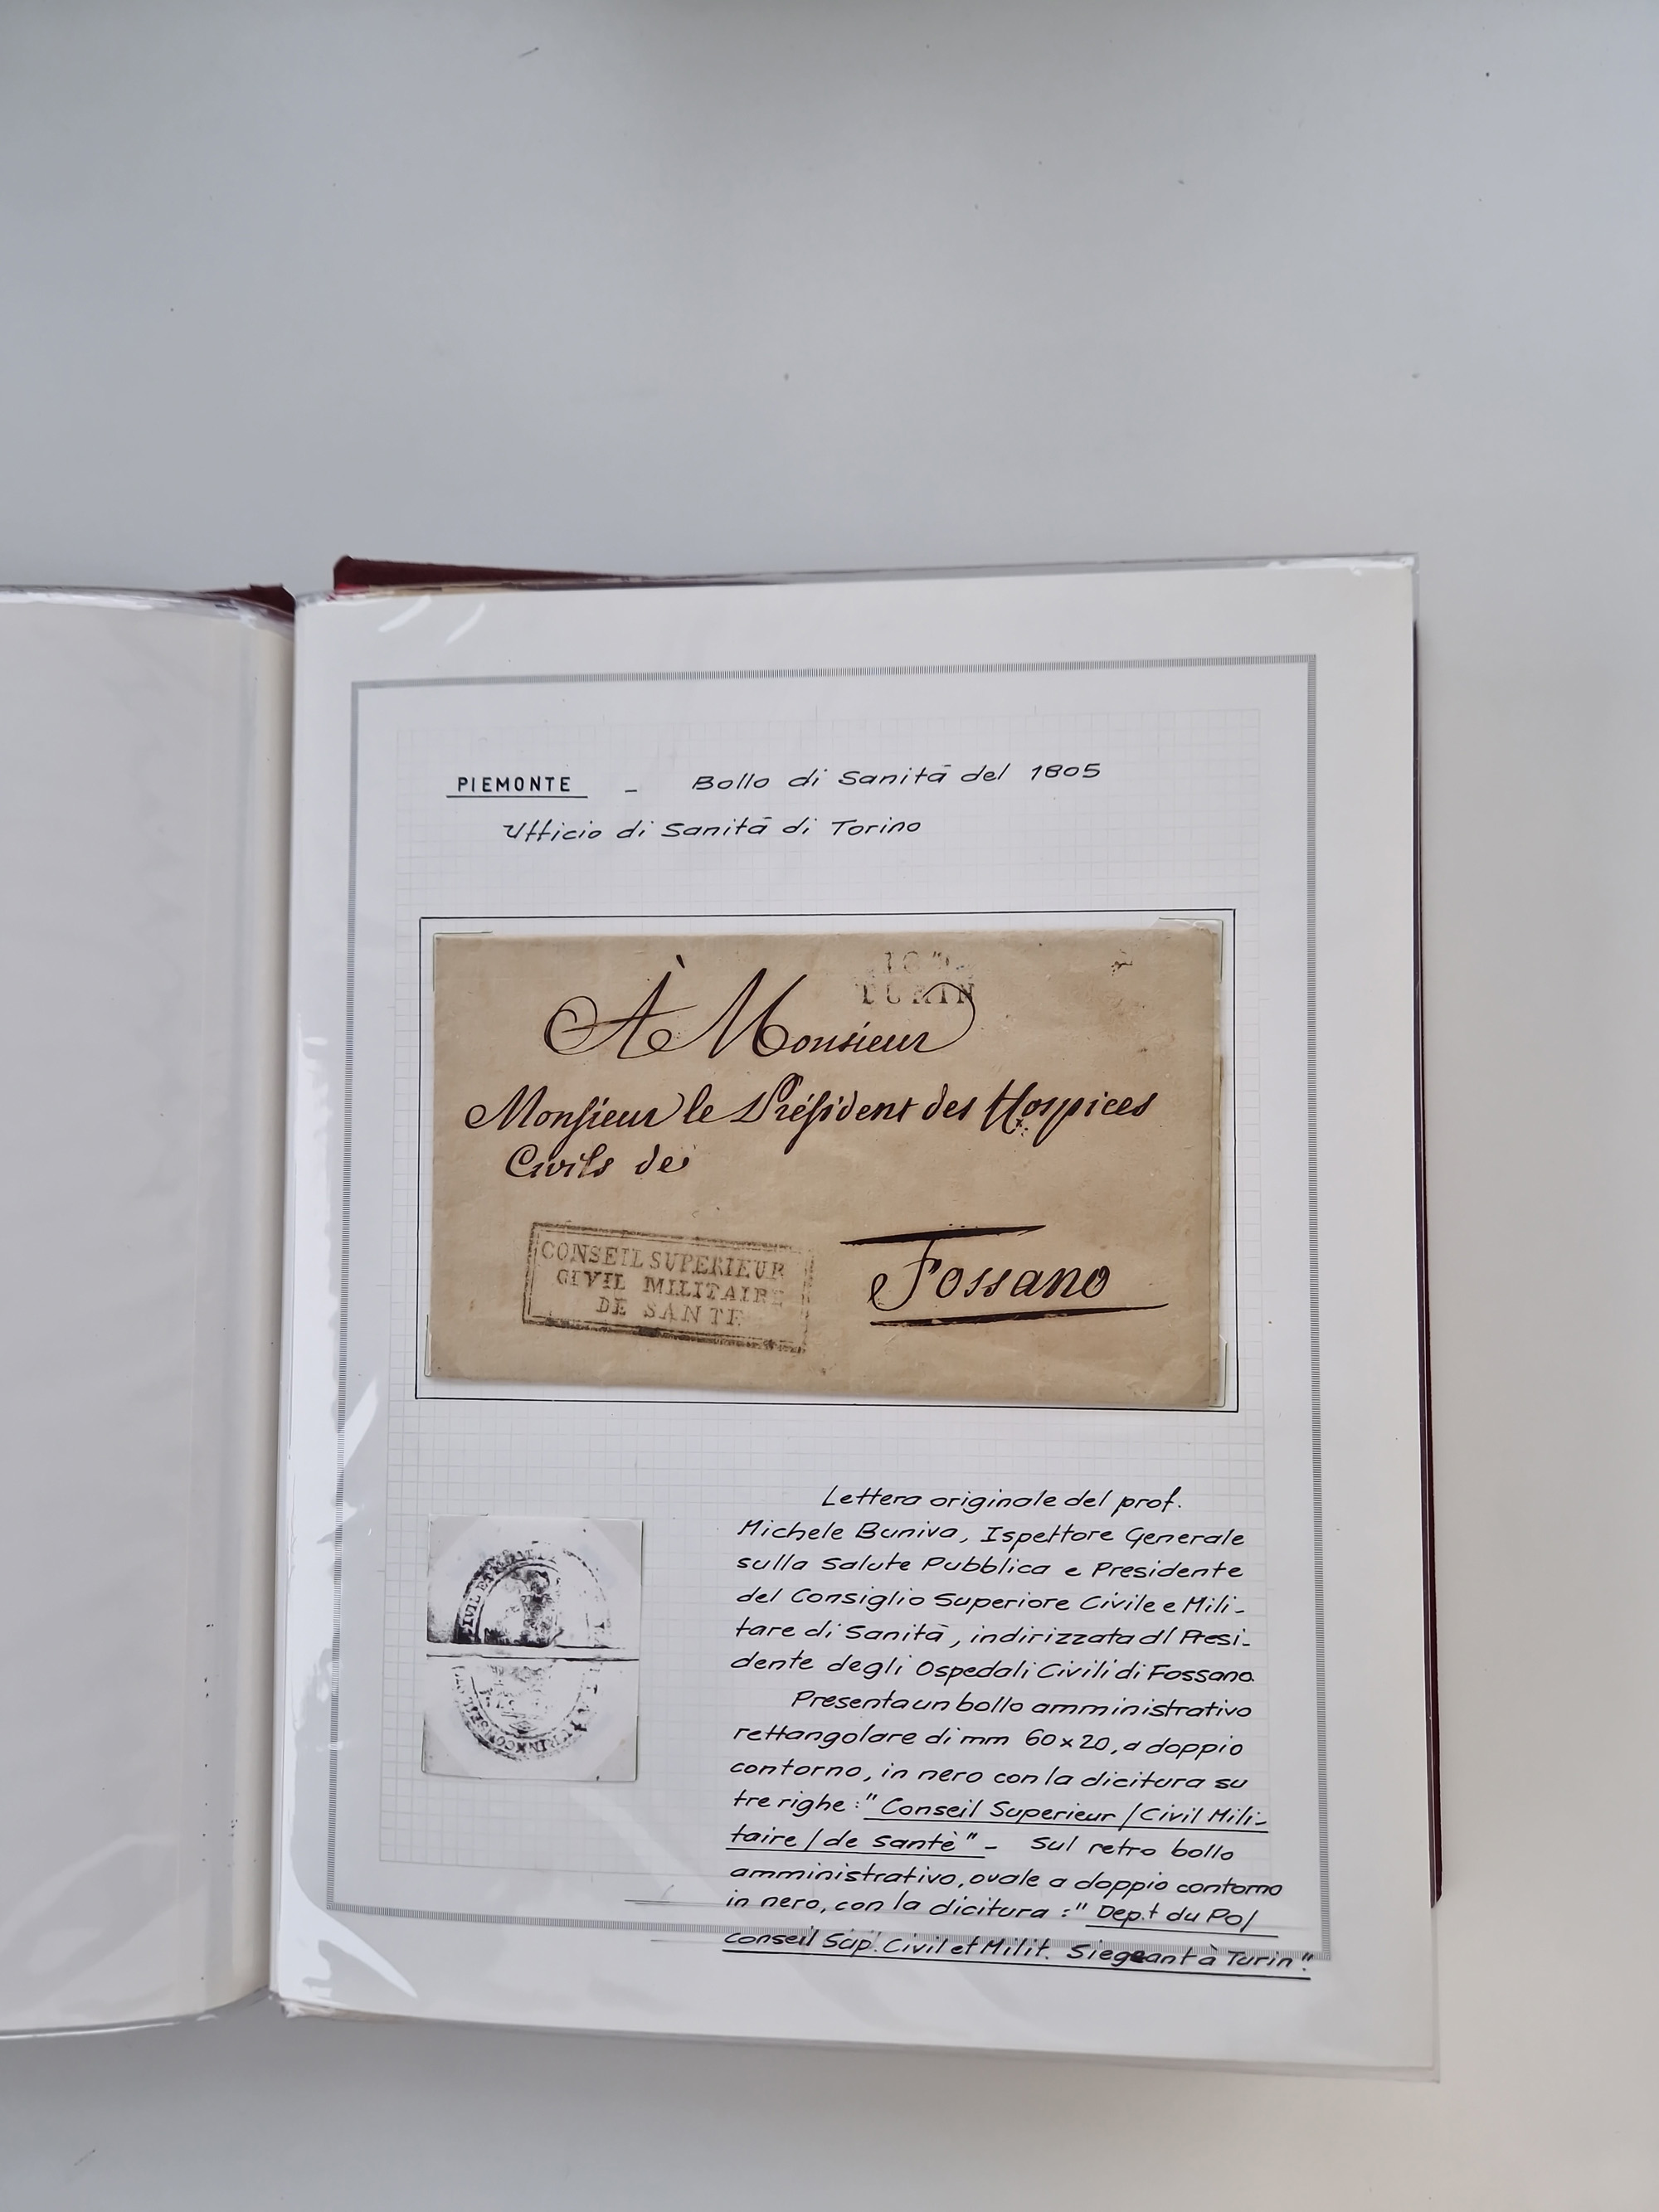 PIEMONTE - Bollo di Sanità del 1805
Ufficio di Sanità di Torino
TURIN
À Monsieur
Monsieur le Président des Hospices
Civils de
CONSEIL SUPERIEUR
CIVIL MILITAIRE
DE SANTE
Fossano
Lettera originale del prof.
Michele Buniva, Ispettore Generale
sulla Salute Pubblica e Presidente
del Consiglio Superiore Civile e Mili-
tare di Sanità, indirizzata al Presi-
dente degli Ospedali Civili di Fossano.
Presenta un bollo amministrativo
rettangolare di mm 60x20, a doppio
contorno, in nero con la dicitura su
tre righe: "Conseil Superieur / Civil Mili-
taire / de santè" - Sul retro bollo
amministrativo, ovale a doppio contorno
in nero, con la dicitura: "Dep.t du Po/
Conseil Sup. Civil et Milit. Siegeant à Turin".